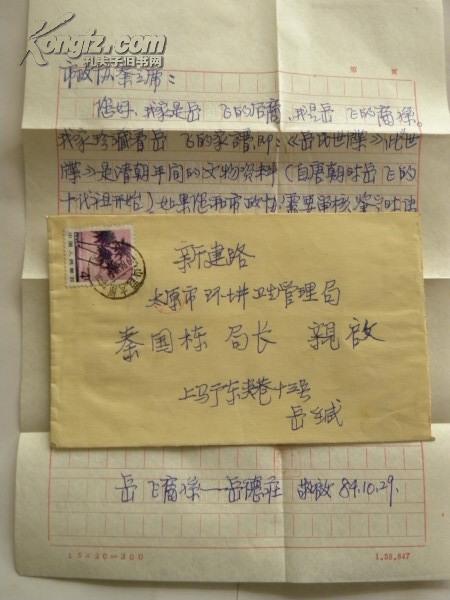 Kongfz.com
孔夫子旧书网
市政协秦主席:
您好,我家是岳 飞的后裔,我是岳 飞的裔孫。
我家珍藏着岳 飞的家譜,即:《岳氏世牒》,此《世
牒》是清朝年间的文物资料(自唐朝时岳 飞的
十代祖开始)如果您和市政协需要审核、鉴
新建路
太原市环境卫生管理局
秦国栋 局长 親啟
上马于东夹巷十三号
岳 缄
岳 飞裔孫——岳德庄 敬啟 89.10.29.
15×20=300